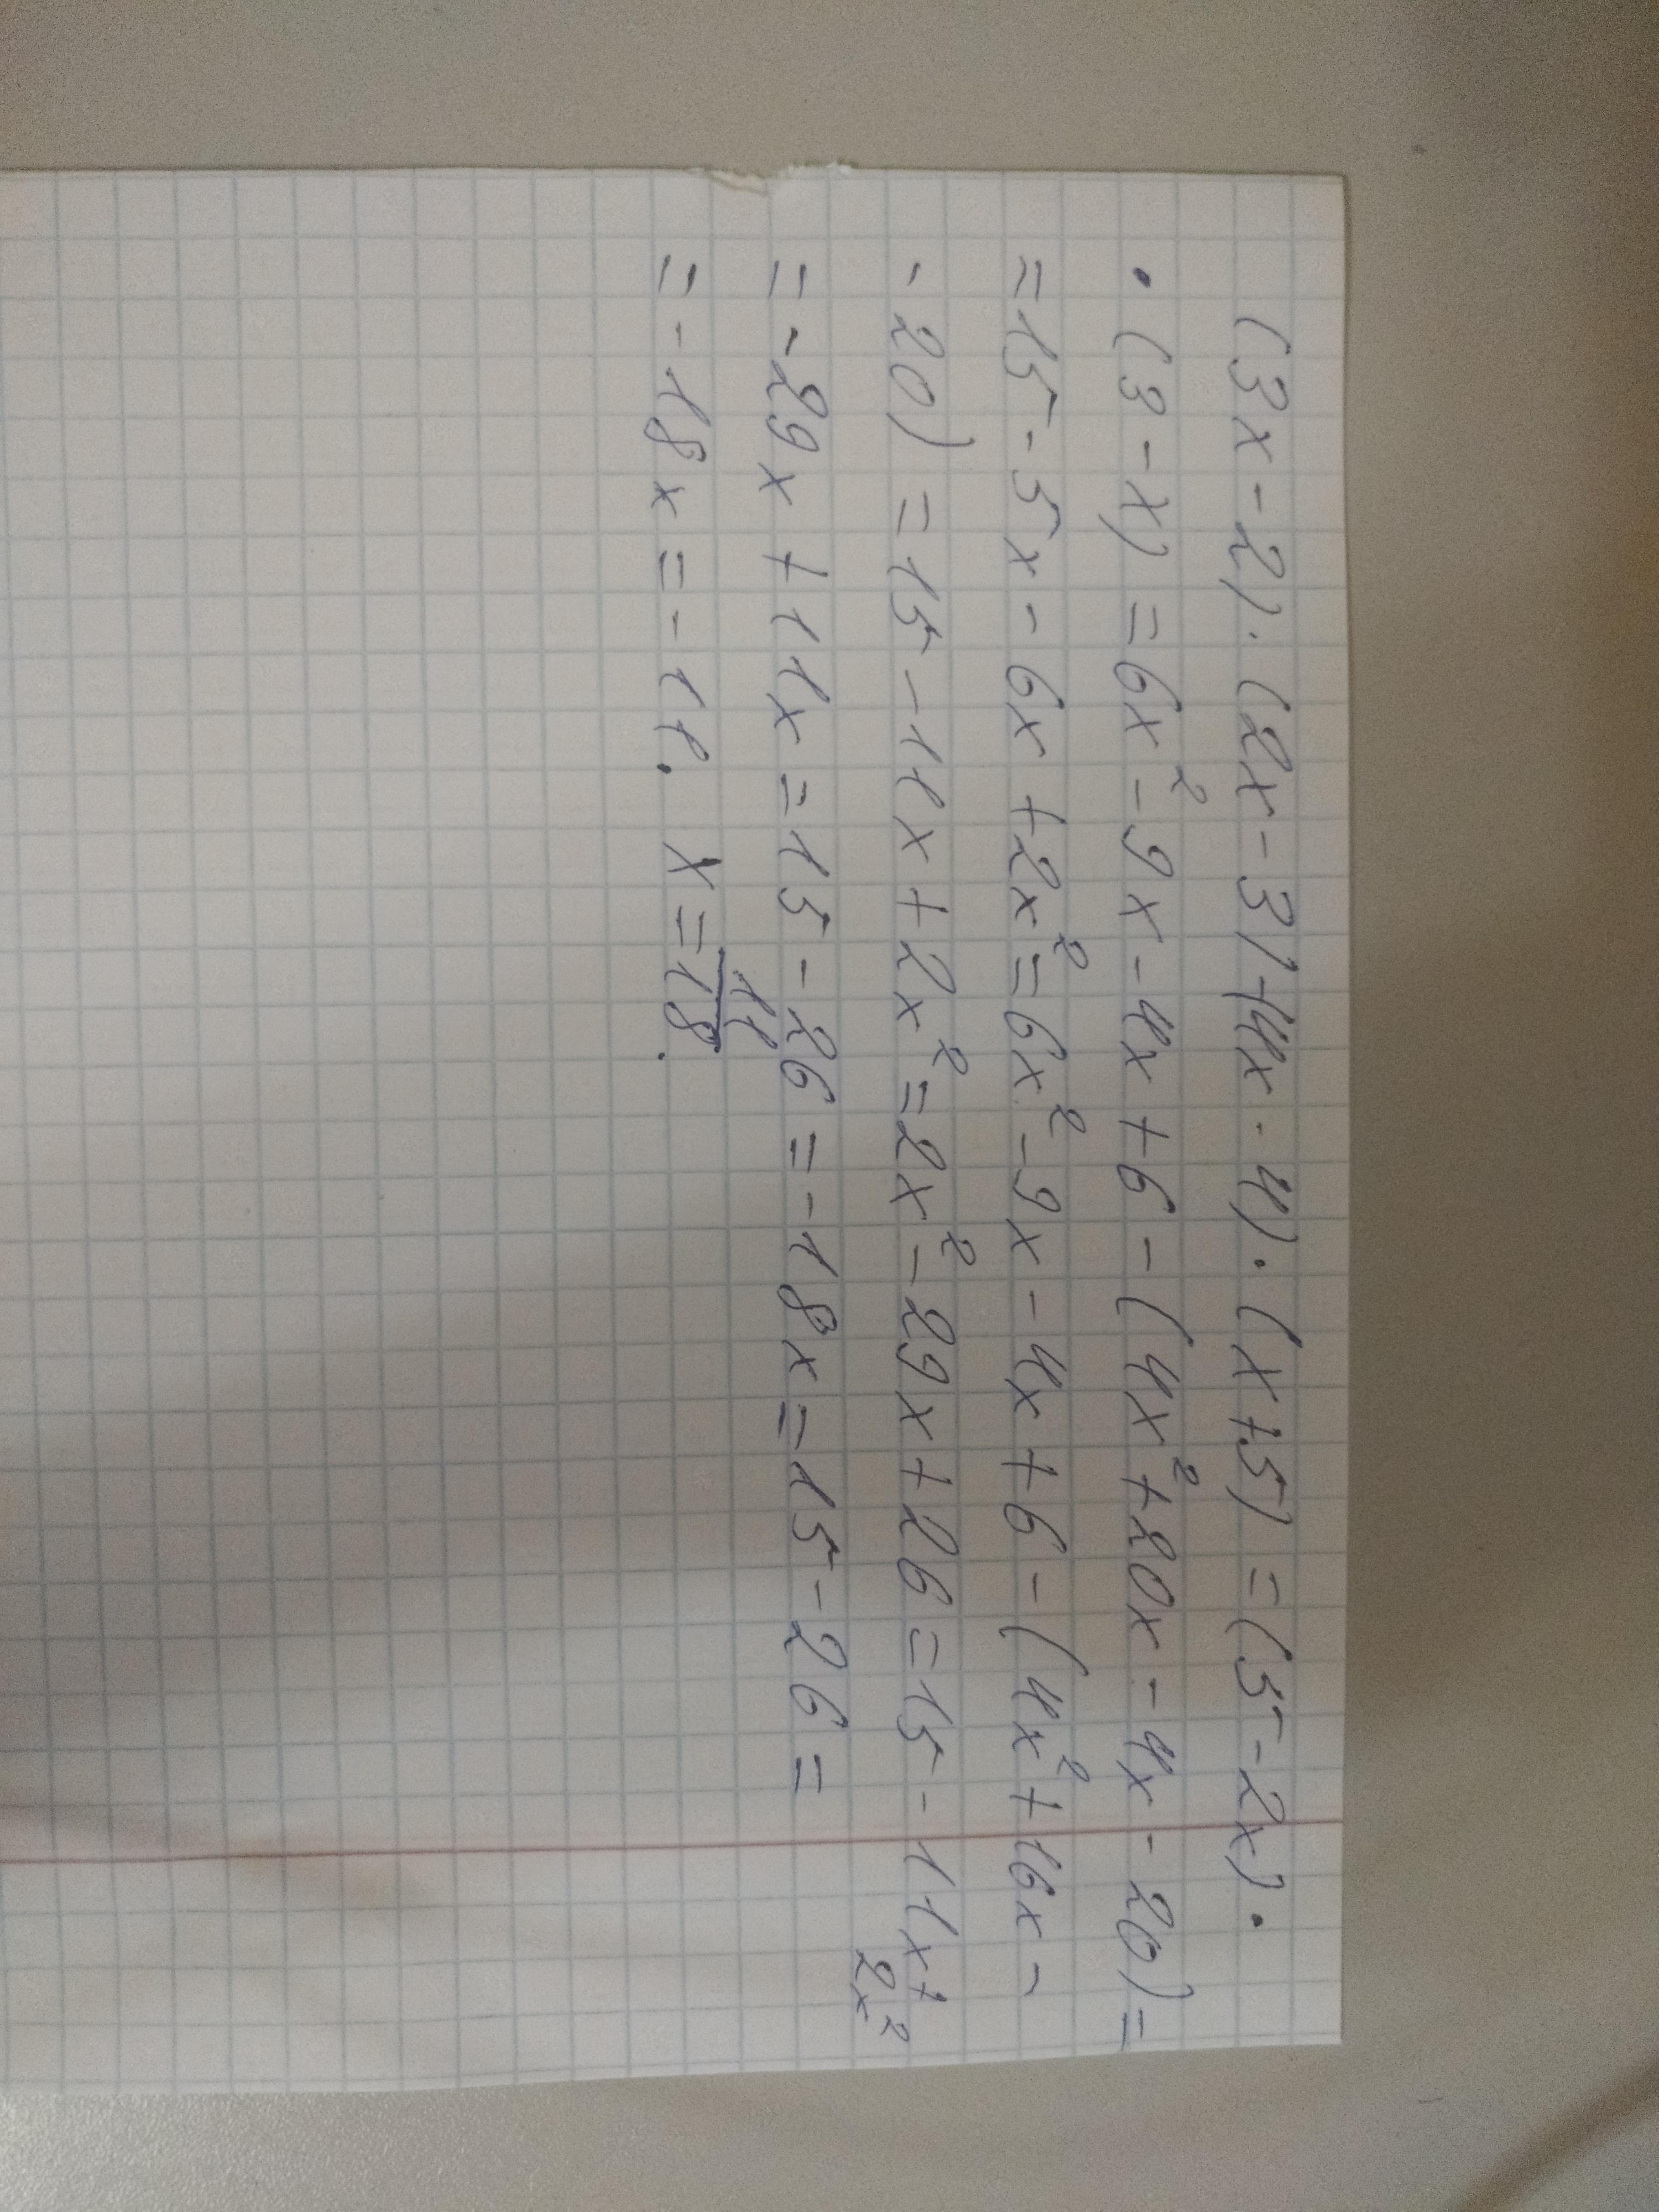 (3x-2)·(2x-3)-(4x-4)·(x+5)=(5-2x)·
·(3-x)=6x²-9x-4x+6-(4x²+20x-4x-20)=
=15-5x-6x+2x²=6x²-9x-4x+6-(4x²+16x-
-20)=15-11x+2x²=2x²-29x+26=15-11x+2x²
=-29x+11x=15-26=-18x=15-26=
=-18x=-11. x=11/18.